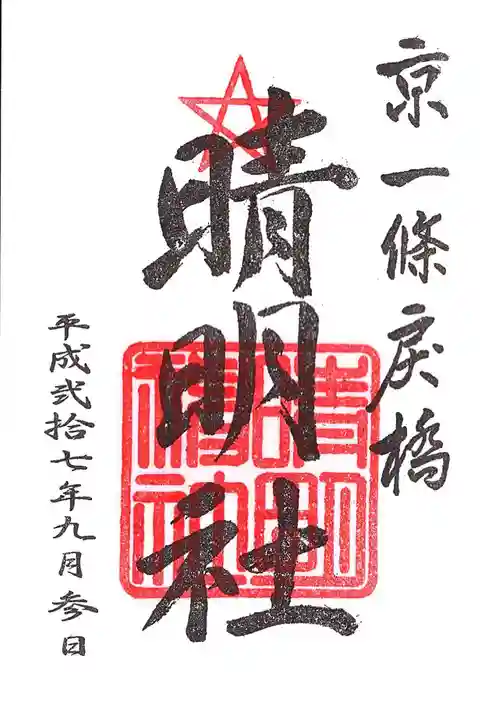 京一條戻橋
晴明社
晴明神社
平成弐拾七年九月参日